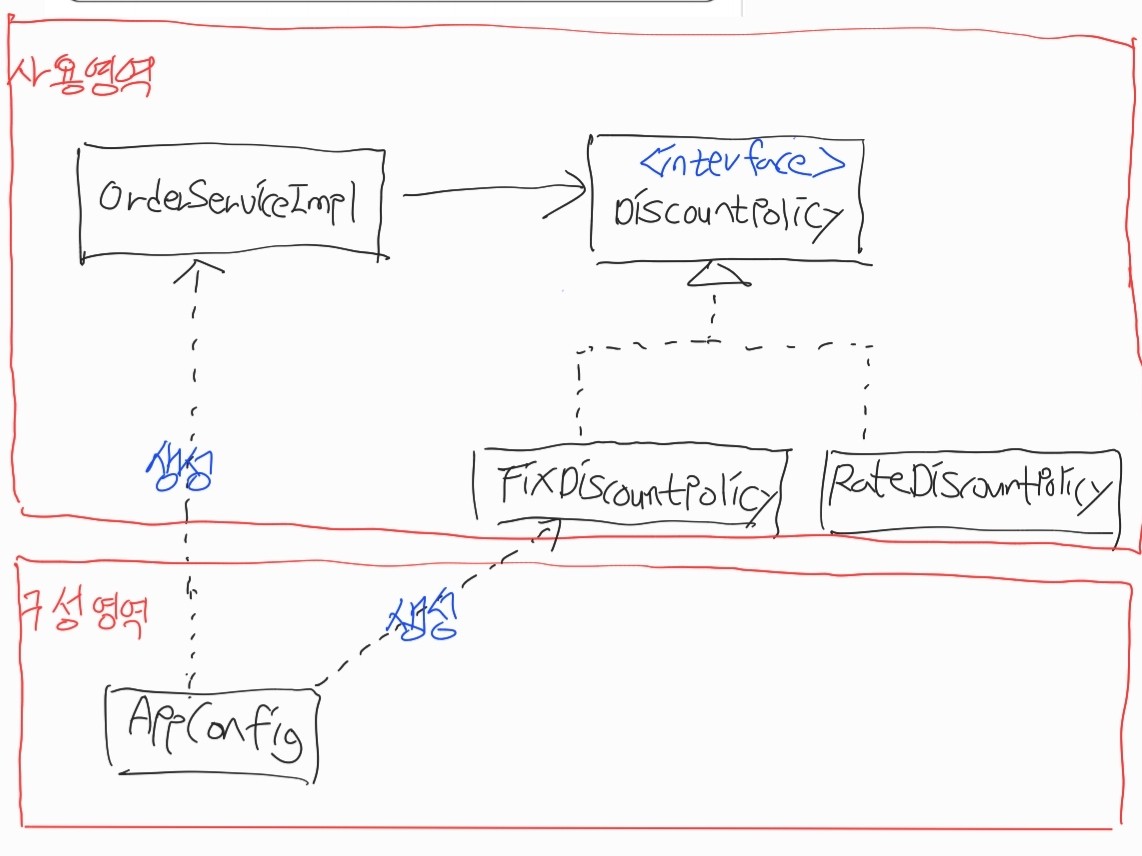 사용영역
OrderServiceImpl
<interface>
DiscountPolicy
생성
FixDiscountPolicy
RateDiscountPolicy
구성영역
생성
AppConfig